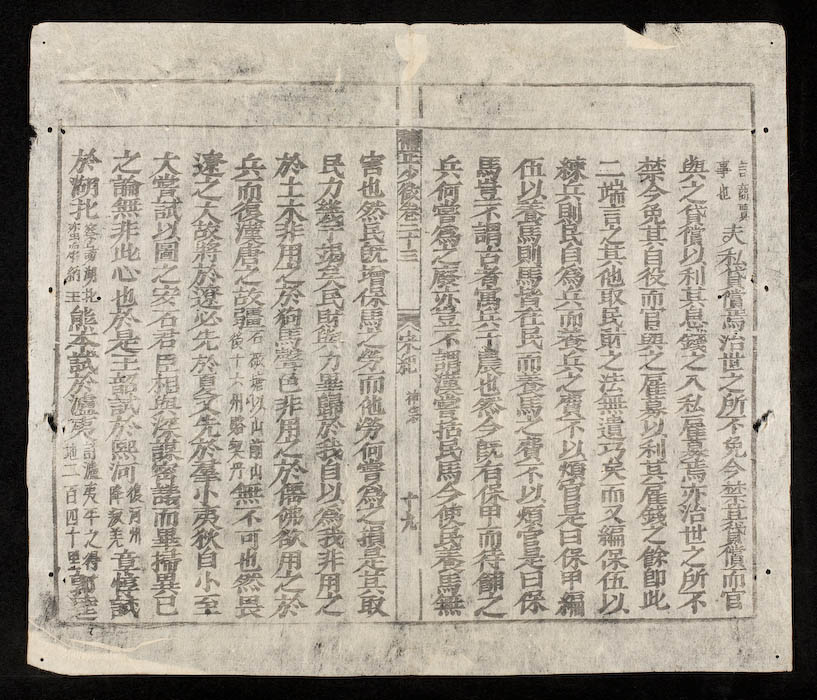 事也 夫私貸償焉治世之所不免今禁其貸償而官
與之貸償以利其息錢之入私雇募焉亦治世之所不
禁今免其自役而官與之雇募以利其雇錢之餘即此
二端言之其他取民財之法無遺巧矣而又編保伍以
練兵則民自為兵而養兵之費不以煩官是曰保甲編
伍以養馬則馬皆在民而養馬之費不以煩官是曰保
馬豈不謂古者寓兵于農也然今既有保甲而待餔之
兵何嘗為之廢亦豈不謂漢嘗括民馬今使民養馬無
卷二十三 宋紀 神宗 十九
害也然民既增保馬之勞而他勞何嘗為之損是其取
民力幾乎竭矣民財與力畢歸於我自以為我非用之
於土木非用之於狗馬聲色非用之於僊佛欲用之於
兵而復漢唐之故疆石敬瑭以山前山後十六州賂契丹無不可也然畏
遼之大故將於遼必先於夏又先於羣小夷狄自小至
大嘗試以圖之安石君臣相與深謀密議而畢掃異己
之論無非此心也於是王韶試於熙河復河州降洮羌章惇試
於湖北 熊本試於瀘夷討瀘夷平之得地二百四十里郭逵